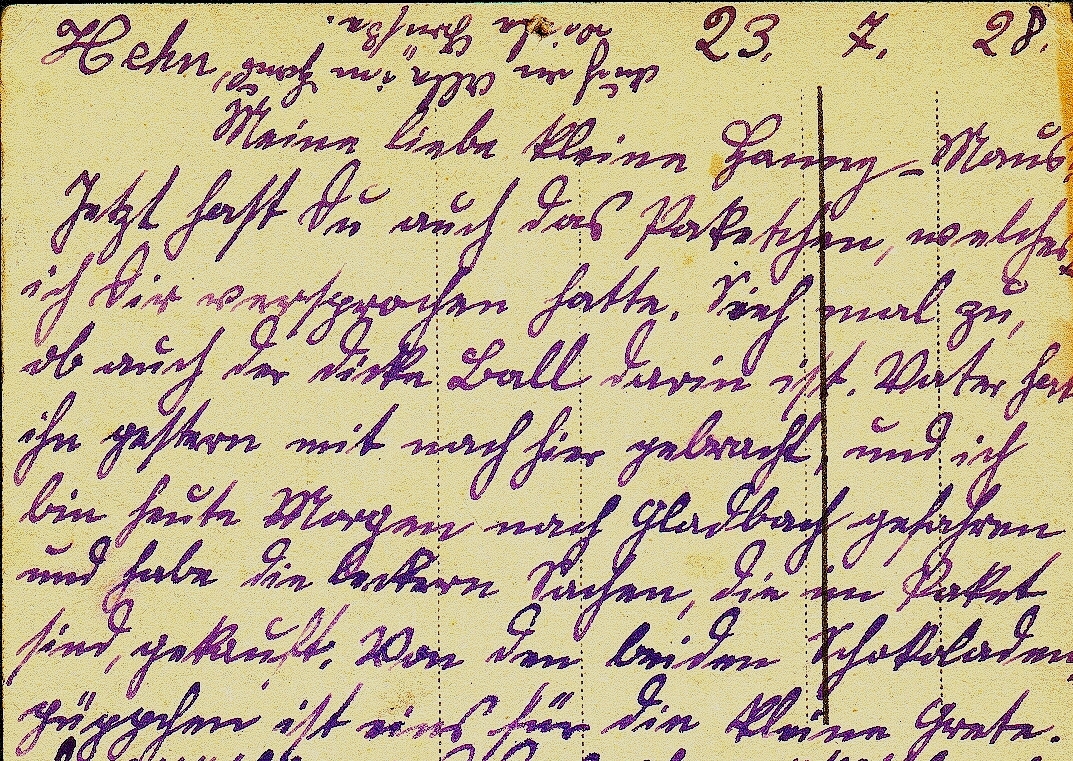 Hehn, 23. 7. 28.
Meine liebe kleine Hanny-Maus.
Jetzt hast Du auch das Paketchen, welches
ich Dir versprochen hatte. Sieh mal zu,
ob auch der dicke Ball darin ist. Vater hat
ihn gestern mit nach hier gebracht, und ich
bin heute Morgen nach Gladbach gefahren
und habe die leckern Sachen, die im Paket
sind, gekauft. Von den beiden Schokoladen
püppchen ist eins für die kleine Grete.